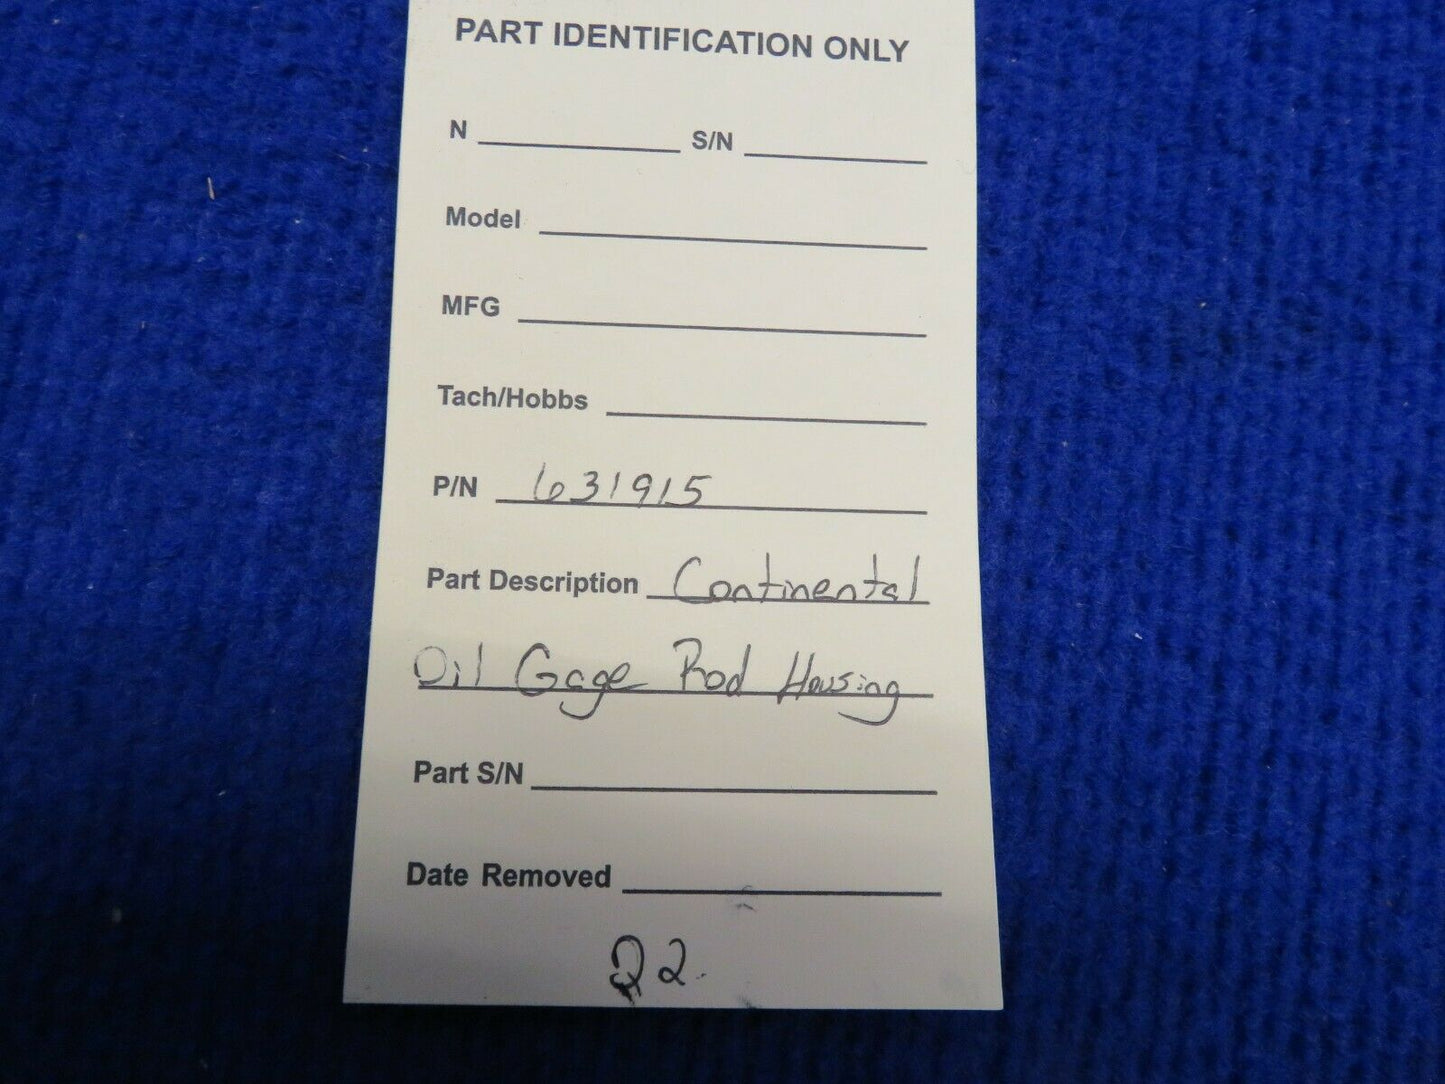 PART IDENTIFICATION ONLY
N S/N
Model
MFG
Tach/Hobbs
P/N 631915
Part Description Continental
Oil Gage Rod Housing
Part S/N
Date Removed